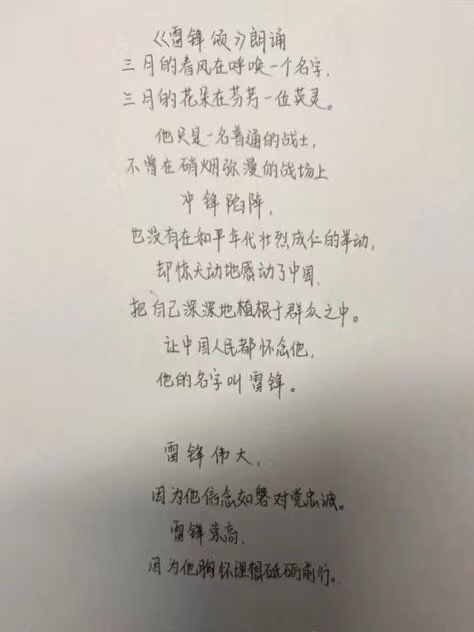 《雷锋颂》朗诵
三月的春风在呼唤一个名字,
三月的花朵在芬芳一位英灵。
他只是一名普通的战士,
不曾在硝烟弥漫的战场上
冲锋陷阵,
也没有在和平年代壮烈成仁的举动,
却惊天动地感动了中国,
把自己深深地植根于群众之中。
让中国人民都怀念他,
他的名字叫雷锋。
雷锋伟大,
因为他信念如磐对党忠诚。
雷锋崇高,
因为他胸怀理想砥砺前行。